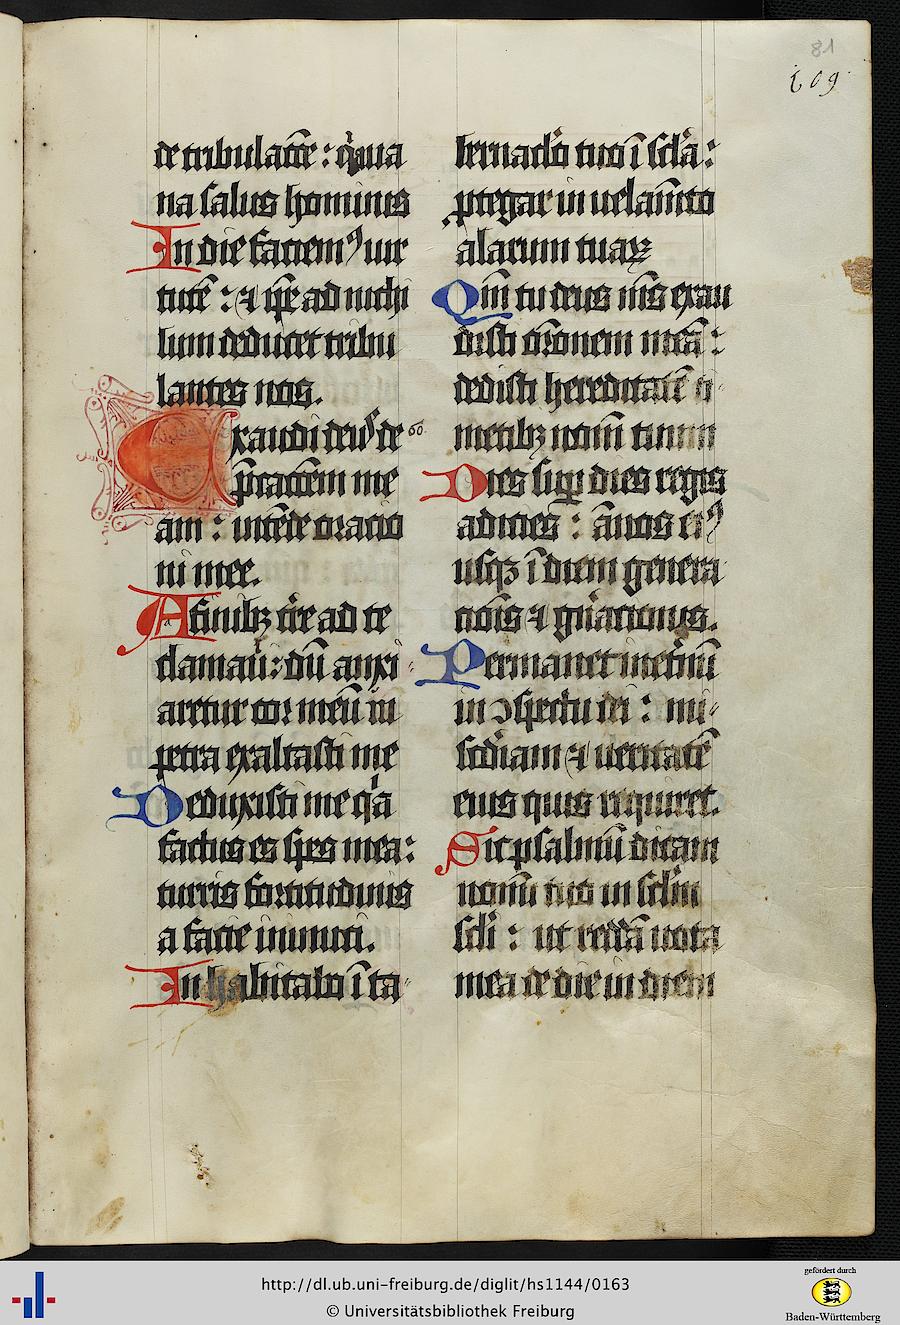 81
109
de tribulac̄oe : q̇a ua
na salus hominis
In die faciemꝰ uir
tutē : ⁊ ip̄e ad nichi
lum deducet tribu
lantes nos.
Exaudi deus de 60.
p̄cac̄oem me
am : intēde oracio
ni mee.
A finibꝫ t̄re ad te
clamaui : dū anxi
aretur cor meū in
petra exaltasti me
Deduxisti me q̇a
factus es spes mea :
turris fortitudinis
a facie inimici.
In habitabo ī ta
bernac̄lo tuo ī sc̄la :
ꝓtegar in uelam̄to
alarum tuaꝝ
Qm̄ tu deus m̄s exau
disti or̄onem meā :
dedisti hereditatē ti
mētibꝫ nomē tuum
Dies suꝑ dies regis
adicies : ānos eiꝰ
usqꝫ ī diem genera
cōis ⁊ gn̄acionis.
Permanet in et̄nū
in ↄspectu dei : mi
sc̄diam ⁊ ueritatē
eius quis requiret.
Sic psalmū dicam
nomī tuo in sc̄lm
sc̄li : ut reddā uota
mea de die in diem
http://dl.ub.uni-freiburg.de/diglit/hs1144/0163
© Universitätsbibliothek Freiburg
gefördert durch
Baden-Württemberg